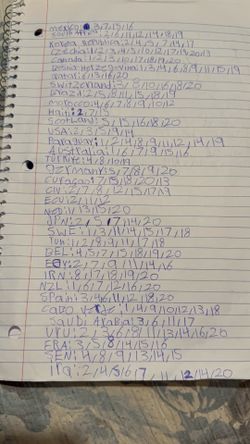 mexico: 3,7,15,16
South Africa: 2,6,11,12,14,8,19
Korea Republic: 2,4,5,7,14,17
Czechia: 1,2,3,4,5,10,12,17,19,20,13
Canada: 1,2,3,10,17,18,19,20
Bosnia Herzegovina: 3,4,6,8,9,11,15,19
Qatar: 6,13,16,20
Switzerland: 3,8,10,16,18,20
Brazil: 2,5,8,11,15,18,19
morocco: 4,6,7,8,9,10,12
Haiti: 2,7,13
Scotland: 5,15,16,18,20
USA: 2,3,5,9,14
Paraguay: 1,2,4,8,9,11,12,14,19
Australia: 1,6,7,9,15,16
Turkiye: 4,8,10,19
Germany: 5,7,8,9,20
Curacao: 7,15,18,20,13
CIV: 2,7,8,12,15,17,19
ECU: 2,11,12
NED: 1,13,15,20
JPN: 2,5,17,14,20
SWE: 1,3,11,14,15,17,18
TUN: 1,2,8,9,11,17,18
BEL: 4,5,7,15,18,19,20
EGY: 2,7,9,11,14,16
IRN: 8,17,18,19,20
NZL: 1,6,7,12,16,20
Spain: 3,4,6,11,12,18,20
Cabo: 1,4,9,10,12,13,18
Saudi Arabia: 3,6,11,17
URU: 2,3,6,8,11,13,14,16,20
FRA: 3,5,8,14,15,16
SEN: 4,8,9,13,14,15
Irq: 2,4,5,6,17,11,12,14,20